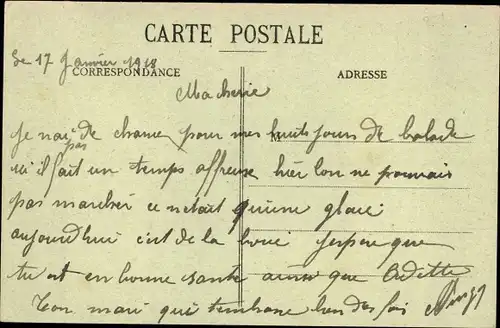 CARTE POSTALE
Le 17 Janvier 1918
CORRESPONDANCE
ADRESSE
Ma cherie
M
je nai pas de chance pour mes huits jours de balade
ici il fait un temps affreuse hier lon ne pouvais
pas marcher ce netait quune glace
aujourdhui c'est de la boue jespere que
tu et en bonne sante ainsi que Odette
Ton mari qui tembrasse bien des fois